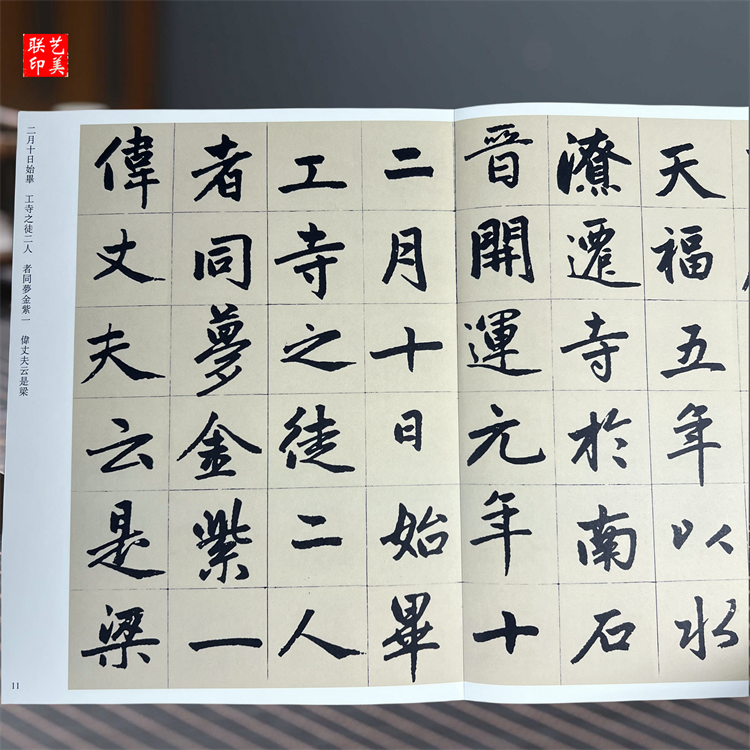 艺美
联印
天福五年以水
潦遷寺於南石
晉開運元年十
二月十日始畢
工寺之徒二人
者同夢金紫一
偉丈夫云是梁
二月十日始畢　工寺之徒二人　者同夢金紫一　偉丈夫云是梁
11